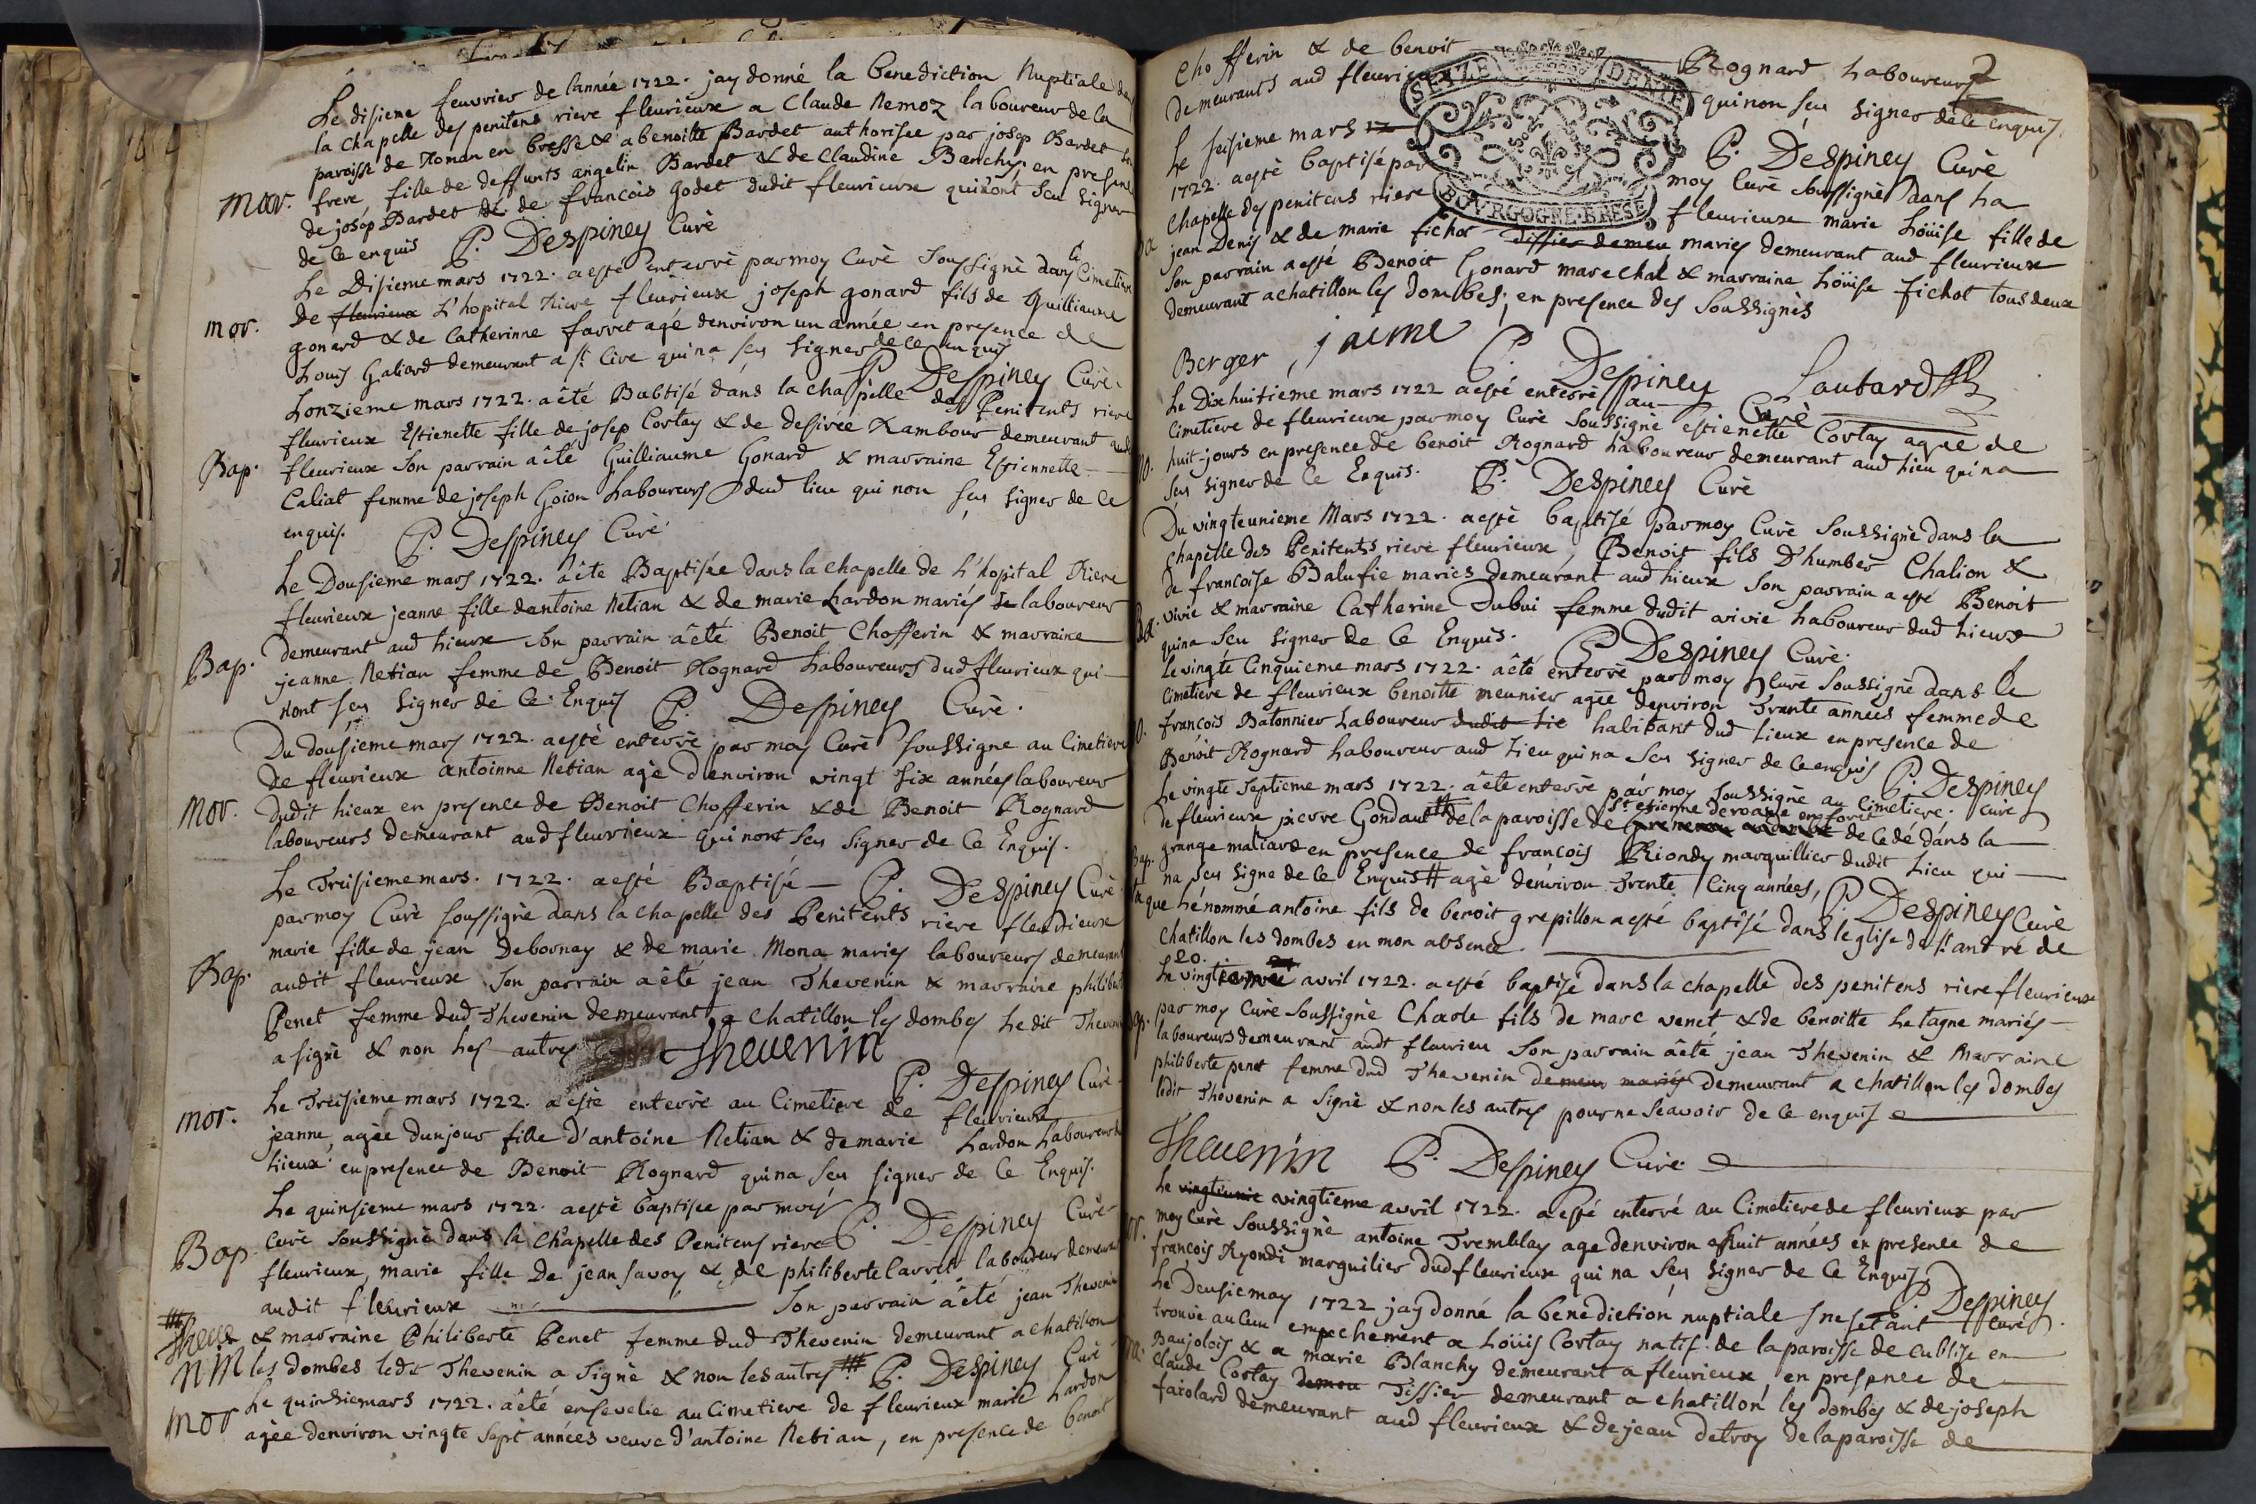 Le disieme feuvrier de lannée 1722. jay donné la benediction Nuptiale dans
la chapelle des penitens riere fleurieux a Claude Nemoz laboureur de la
paroisse de Roman en bresse & a benoitte Bardet authorisée par josep Bardet son
frere fille de deffunts angelin Bardet & de claudine Banchy, en presence
Mar.
de josep Bardet de de francois godet dudit fleurieux qui n'ont sceu signer
de ce enquis P. Despiney Curé
Le Disieme mars 1722. a esté enterré par moy Curé Soussigné dans le Cimetiere
mor.
de fleurieux L'hopital Riere fleurieux joseph gonard fils de Guilliaume
gonard & de Catherinne favret agé denviron un année en presence de
Louis Galiard demeurant a st Cire qui na sceu signer de ce enquis
P. Despiney Curé
Lonzieme mars 1722. a êté Babtisé dans la chapelle des Penitents riere
fleurieux Estienette fille de josep Cortay & de desirée Rambour demeurant aud
Bap.
fleurieux Son parrain a êté Guilliaume Gonard & marraine Estiennette
Caliat femme de joseph Goion Laboureurs dud lieu qui non sceu signer de ce
enquis. P. Despiney Curé
Le Dousieme mars 1722. a êté Baptisée dans la chapelle de L'hopital Riere
fleurieux jeanne fille dantoine Netian & de marie Lardon mariés Le laboureur
Bap.
demeurant aud Lieux Son parrain a êté Benoit Chofferin & marraine
jeanne Netian femme de Benoit Rognard Laboureurs dud fleurieux qui
nont sceu signer de Ce Enquis P. Despiney Curé.
Du dousieme mars 1722. a esté enterré par moy Curé soussigne au Cimetiere
de fleurieux antoinne Netian agé d'environ vingt six années laboureur
Mor.
dudit Lieux en presence de Benoit Chofferin & de Benoit Rognard
laboureurs demeurant aud fleurieux qui nont sceu Signer de Ce Enquis.
P. Despiney Curé
Le Treisieme mars. 1722. a esté Baptisé
par moy Curé soussigné dans la chapelle des Penitents riere fleurieux
marie fille de jean Debornay & de marie Mona mariés laboureurs demeurant
Bap.
audit fleurieux Son parrain a êté jean Thevenin & marraine philiberte
Penet femme dud Thevenin demeurant a chatillon les dombes Ledit Thevenin
a signé & non Les autres Thevenin
P. Despiney Curé
mor.
Le Treisieme mars 1722. a esté enterré au Cimetiere de fleurieux
jeanne, agée dunjour fille d'antoine Netian & de marie Lardon Laboureurs
Lieux en presence de Benoit Rognard qui na sceu signer de Ce Enquis.
P. Despiney Curé
Le quinsieme mars 1722. a esté baptisée par moy
Bap.
Curé Soussigné dans la chapelle des Penitens riere
fleurieux, marie fille De jean Savoy & de philiberte Lavret laboureur demeurant
audit fleurieux Son parrain a êté jean Thevenin
& marraine Philiberte Penet femme dud Thevenin demeurant a chatillon
Theve
nin
les dombes ledit Thevenin a Signé & non les autres P. Despiney Curé
mor
Le quinsie mars 1722. a êté ensevelie au Cimetiere de fleurieux marie Lardon
agée denviron vingte Sept années veuve d'antoine Netian, en presence de benoit
Chofferin & de benoit Rognard Laboureurs 2
demeurants aud fleurieux qui non sceu signer de ce enquis
SEIZE DENIE
BOURGOGNE.BRESE
P. Despiney Curé
Le seisieme mars
1722. a esté baptisé par moy Curé Soussigné dans La
chapelle des penitens riere fleurieux marie Loüise fille de
Ba
jean Denis & de marie fichot Tissier demeu mariés demeurant aud fleurieux
Son parrain a esté Benoit Gonard marechal & marraine Loüise fichot tous deux
demeurant a chatillon les dombes; en presence des Soussignés
Berger jaeme P. Despiney Curé Loubard
Le Dixhuitieme mars 1722 a esté enterré au
Cimetiere de fleurieux par moy Curé Soussigné estienette Cortay agee de
huit jours en presence de benoit Rognard Laboureur demeurant aud Lieu qui na
sceu signer de Ce Enquis. P. Despiney Curé
Du vingteunieme Mars 1722. a esté baptisé par moy Curé Soussigné dans la
chapelle des Penitents riere fleurieux, Benoit fils D'humber Chalion &
de francoise Balufie mariés demeurant aud Lieux Son parrain a esté Benoit
Ba.
vivie & marraine Catherine Dubui femme dudit vivie Laboureur dud Lieux
qui na sceu signer de Ce Enquis. P. Despiney Curé.
Le vingte Cinquieme mars 1722. a êté enterré par moy Curé Soussigné dans le
Cimetiere de fleurieux benoitte meunier agée denviron Trante années femme de
francois Batonnier Laboureur dudit lie habitant dud Lieux en presence de
Benoit Rognard Laboureur aud Lieu qui na sceu signer de ce enquis P. Despiney
curé
Le vingte Septieme mars 1722. a êté enterré par moy soussigné au cimetiere
de fleurieux pierre Gondau de la paroisse de St etienne de roanne en forie decedé dans la
grange maliard en presence de francois Riondy marguillier dudit Lieu qui
na sceu signe de ce Enquis agé denviron Trente Cinq années, P. Despiney Curé
Bap.
que Lénommé antoine fils de benoit grepillon a esté baptisé dans leglise de st andre de
chatillon les dombes en mon absence
20.
Le vingtieme avril 1722. a esté baptisé dans la chapelle des penitens riere fleurieux
par moy Curé Soussigné Charle fils de marc venet & de benoitte Letagne mariés
laboureurs demeurant audt fleurieu Son parrain a êté jean Thevenin & Marraine
philiberte penet femme dud Thevenin demeur mariés demeurant a chatillon les dombes
ledit Thevenin a signé & non les autres pour ne scavoir de ce enquis
Thevenin P. Despiney Curé
Le vingtiunie vingtieme avril 1722. a esté enterré au Cimetiere de fleurieux par
moy Curé Soussigné antoine Tremblay age denviron huit années en presence de
francois Ryondi marguilier dud fleurieux qui na sceu signer de Ce Enquis P. Despiney
curé
Le Deusie may 1722 jay donné la benediction nuptiale sne setant
trouvé aucun empechement a Loüis Cortay natif de la paroisse de cublise en
Ma.
Baujolois & a marie Blanchy demeurant a fleurieux, en presence de
Claude Cortay demeu Tissier demeurant a chatillon les dombes & de joseph
farolard demeurant aud fleurieux & de jean Detroy de la paroisse de